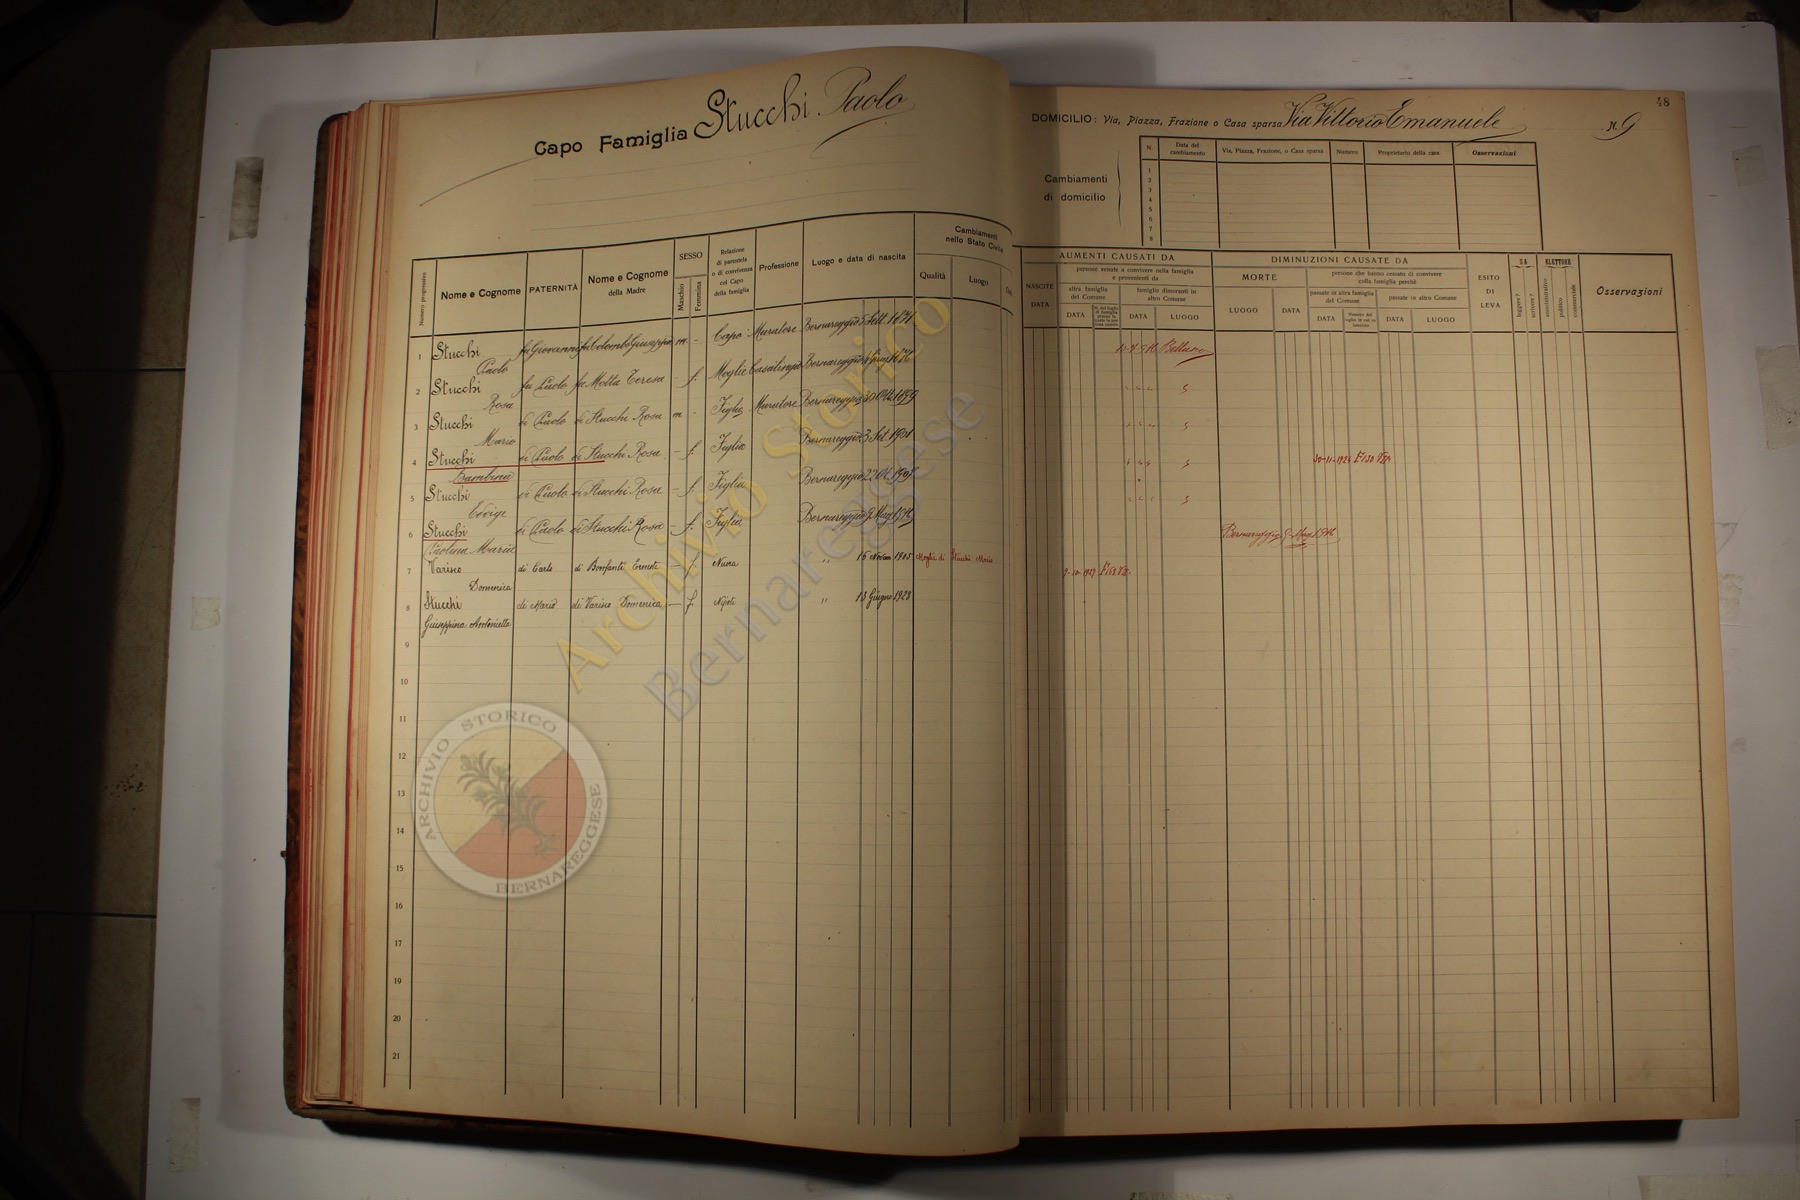 Capo Famiglia Stucchi Paolo
48
DOMICILIO: Via, Piazza, Frazione o Casa sparsa Via Vittorio Emanuele N. 9
Cambiamenti di domicilio
N. Data del cambiamento Via, Piazza, Frazione, o Casa sparsa Numero Proprietario della casa Osservazioni
1
2
3
4
5
6
7
8
Numero progressivo Nome e Cognome PATERNITÀ Nome e Cognome della Madre SESSO Maschio Femmina Relazione di parentela o di convivenza col Capo della famiglia Professione Luogo e data di nascita Cambiamenti nello Stato Civile Qualità Luogo
NASCITE DATA AUMENTI CAUSATI DA persone venute a convivere nella famiglia e provenienti da altra famiglia del Comune DATA famiglie dimoranti in altro Comune DATA LUOGO
DIMINUZIONI CAUSATE DA MORTE LUOGO DATA persone che hanno cessato di convivere colla famiglia perchè passate in altra famiglia del Comune DATA passate in altro Comune DATA LUOGO
ESITO DI LEVA SA leggere? scrivere? ELETTORE amministrativo politico commerciale Osservazioni
1 Stucchi Paolo fu Giovanni fu Colombo Giuseppa m - Capo Muratore Bernareggio 5 Sett. 1871 Belluno
2 Stucchi Rosa fu Paolo fu Motta Teresa - f. Moglie Casalinga Bernareggio
3 Stucchi Mario di Paolo di Stucchi Rosa m - Figlio Muratore Bernareggio 30 Ott. 1899
4 Stucchi Bambina di Paolo di Stucchi Rosa - f. Figlia Bernareggio 3 Set. 1901 30-11-1924
5 Stucchi Edvige di Paolo di Stucchi Rosa - f. Figlia Bernareggio 22
6 Stucchi Paolina Maria di Paolo di Stucchi Rosa - f. Figlia Bernareggio 9 Mag. Bernareggio
7 Varisco Domenica di Carlo di Bonfanti Ernesta - f. Nuora " 16 Novem 1905 Moglie di Stucchi Mario 9-10-1927
8 Stucchi Giuseppina Antonietta di Mario di Varisco Domenica - f. Nipote " 13 Giugno 1928
9
10
11
12
13
14
15
16
17
19
19
20
21
Archivio Storico
Bernareggese
ARCHIVIO STORICO
BERNAREGGESE